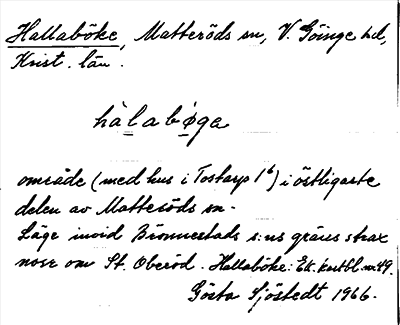 Hallaböke, Matteröds sn, V. Göinge hd,
Krist. län.
hàlabøga
område (med hus i Tostarp 1⁶) i östligaste
delen av Matteröds sn.
Läge invid Brönnestads s:ns gräns strax
norr om St. Oberöd. Hallaböke: Ek. kartbl. nr 49.
Gösta Sjöstedt 1966.